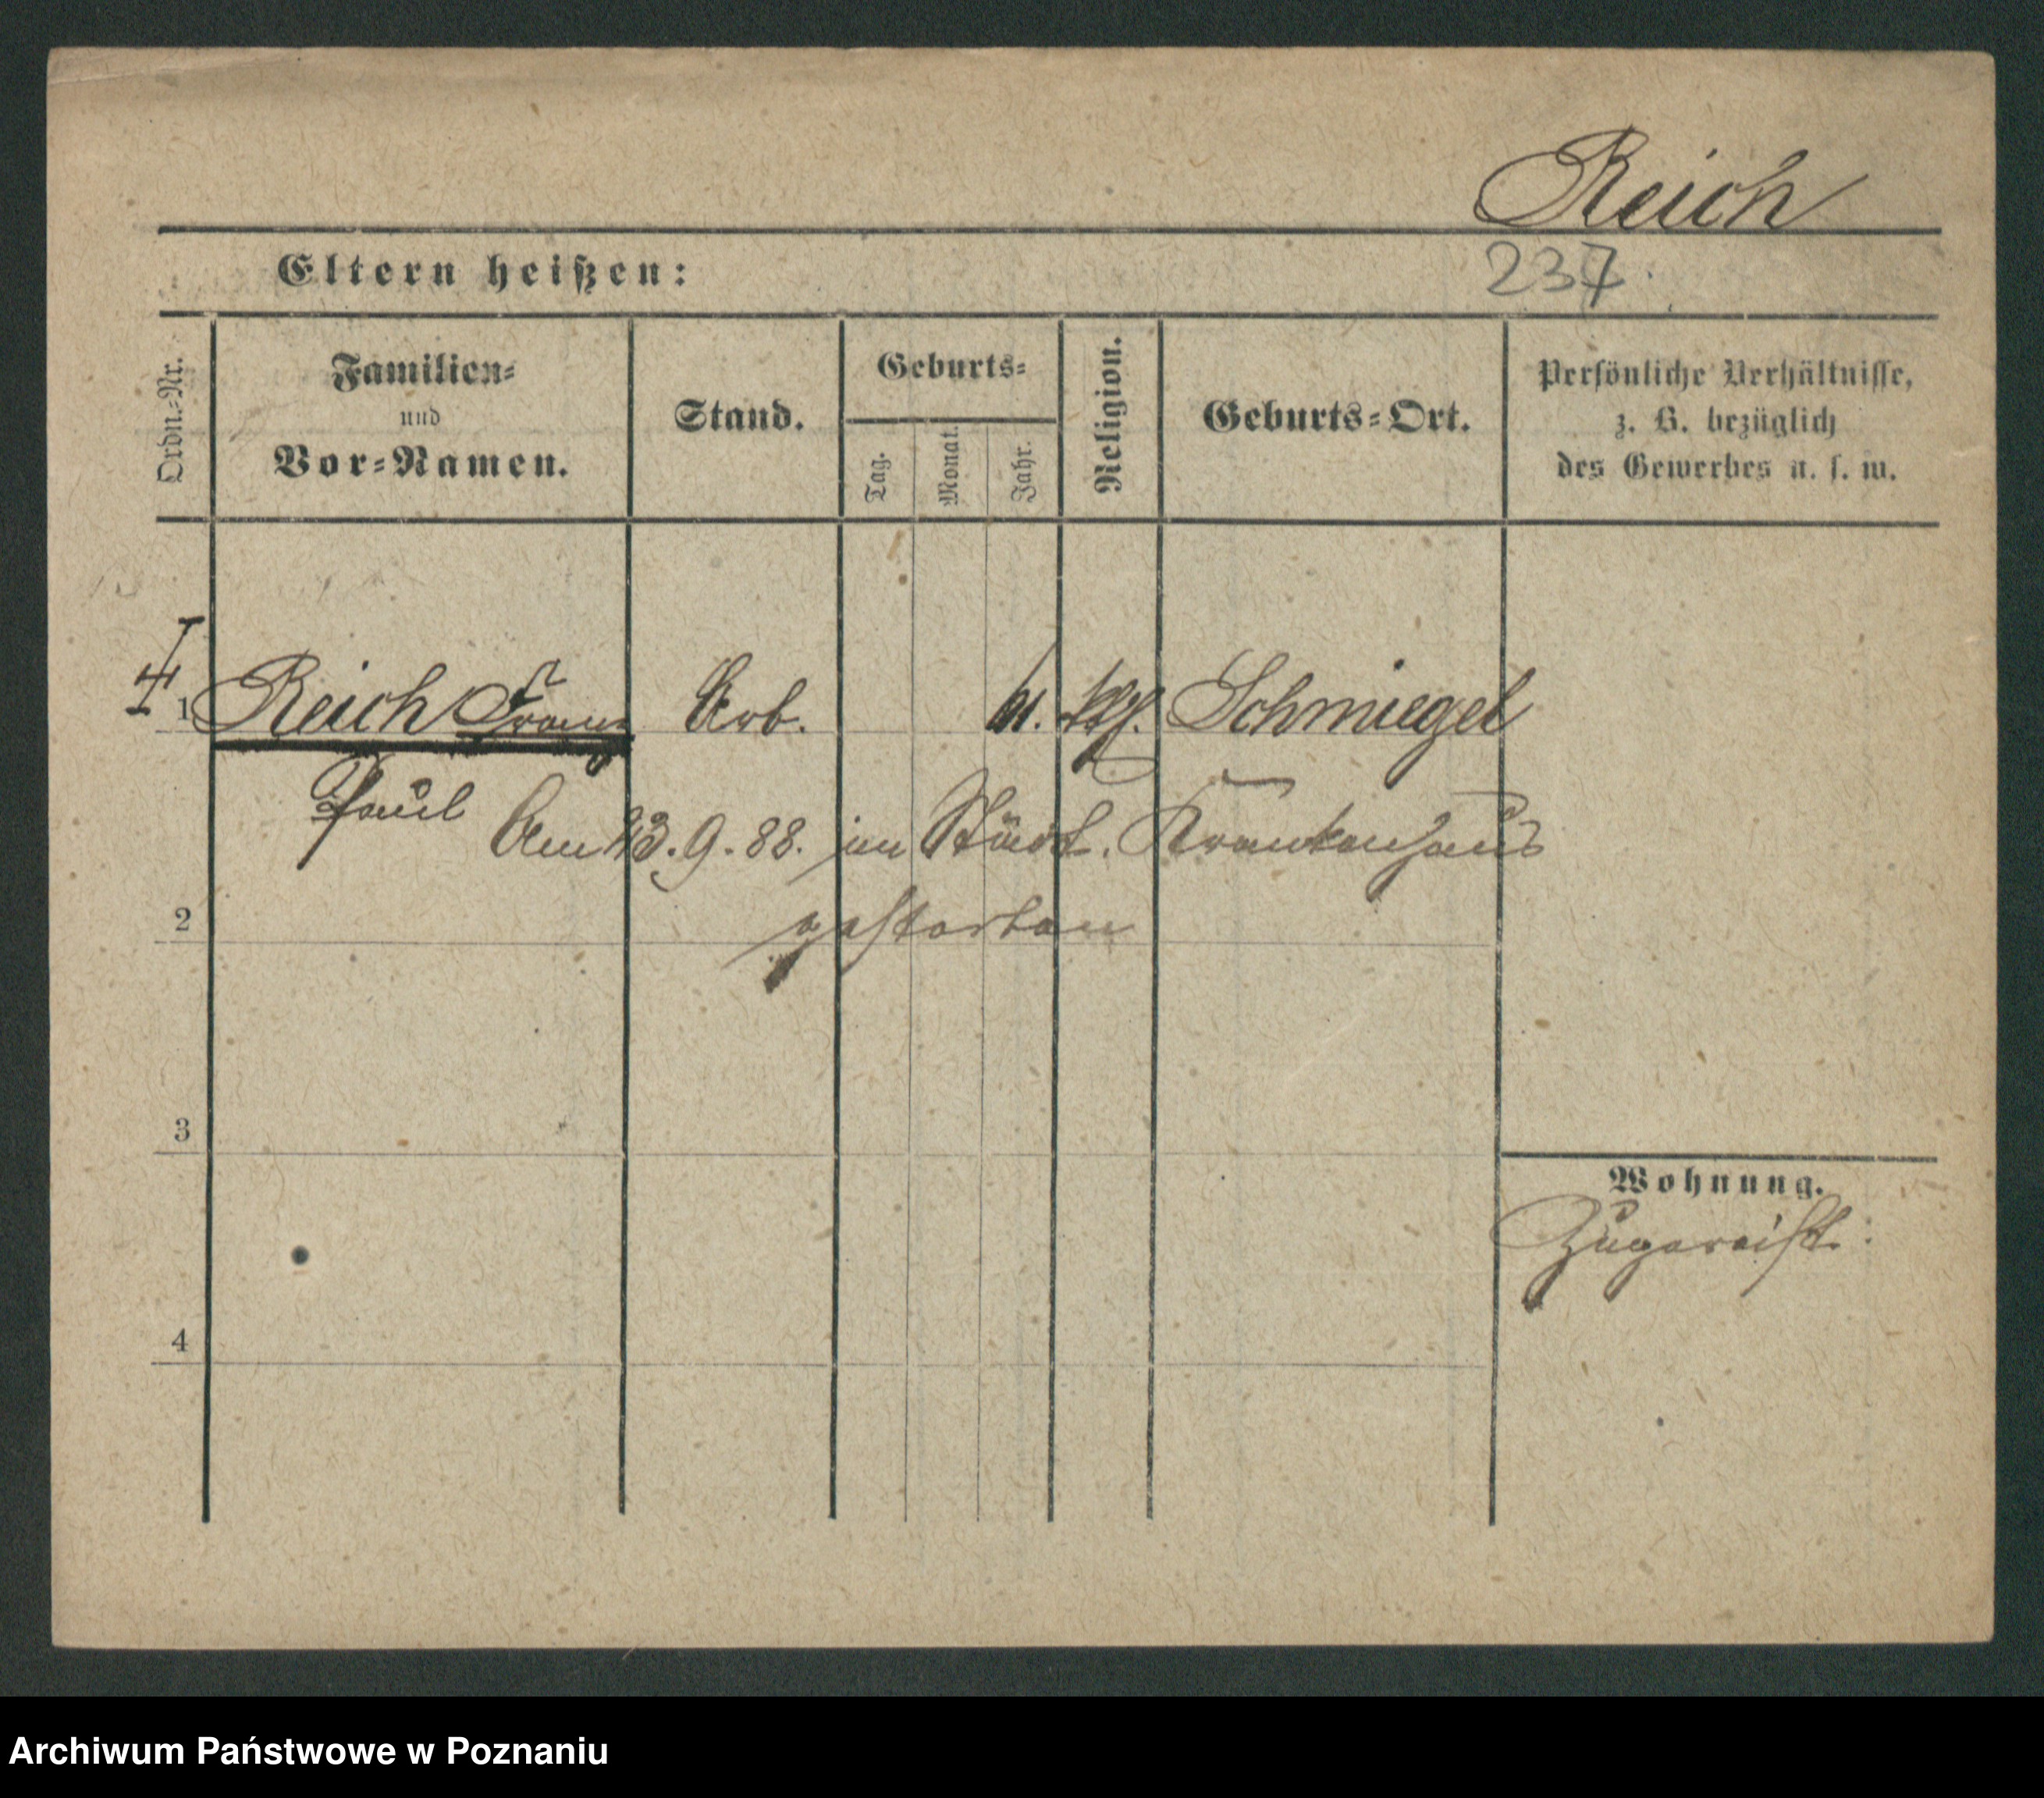 Reich
Eltern heißen:
237.
Ordn.-Nr.
Familien-
und
Vor-Namen.
Stand.
Geburts-
Tag.
Monat.
Jahr.
Religion.
Geburts-Ort.
Persönliche Verhältnisse,
z. B. bezüglich
des Gewerbes u. s. w.
1 Reich Franz Arb. Schmiegel
Paul
Am 13.9.88. im Städt. Krankenhaus
gestorben
2
3
Wohnung.
Zugereist.
4
Archiwum Państwowe w Poznaniu